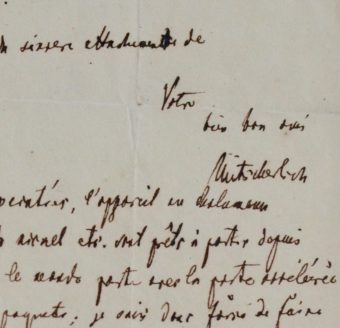 sincere attachement de
Votre
bien bon ami
Mitscherlich
l'appareil en
nickel etc. sont prêts à partir depuis
le monde porte avec la porte accélérée
paquets; je suis donc forcé de faire